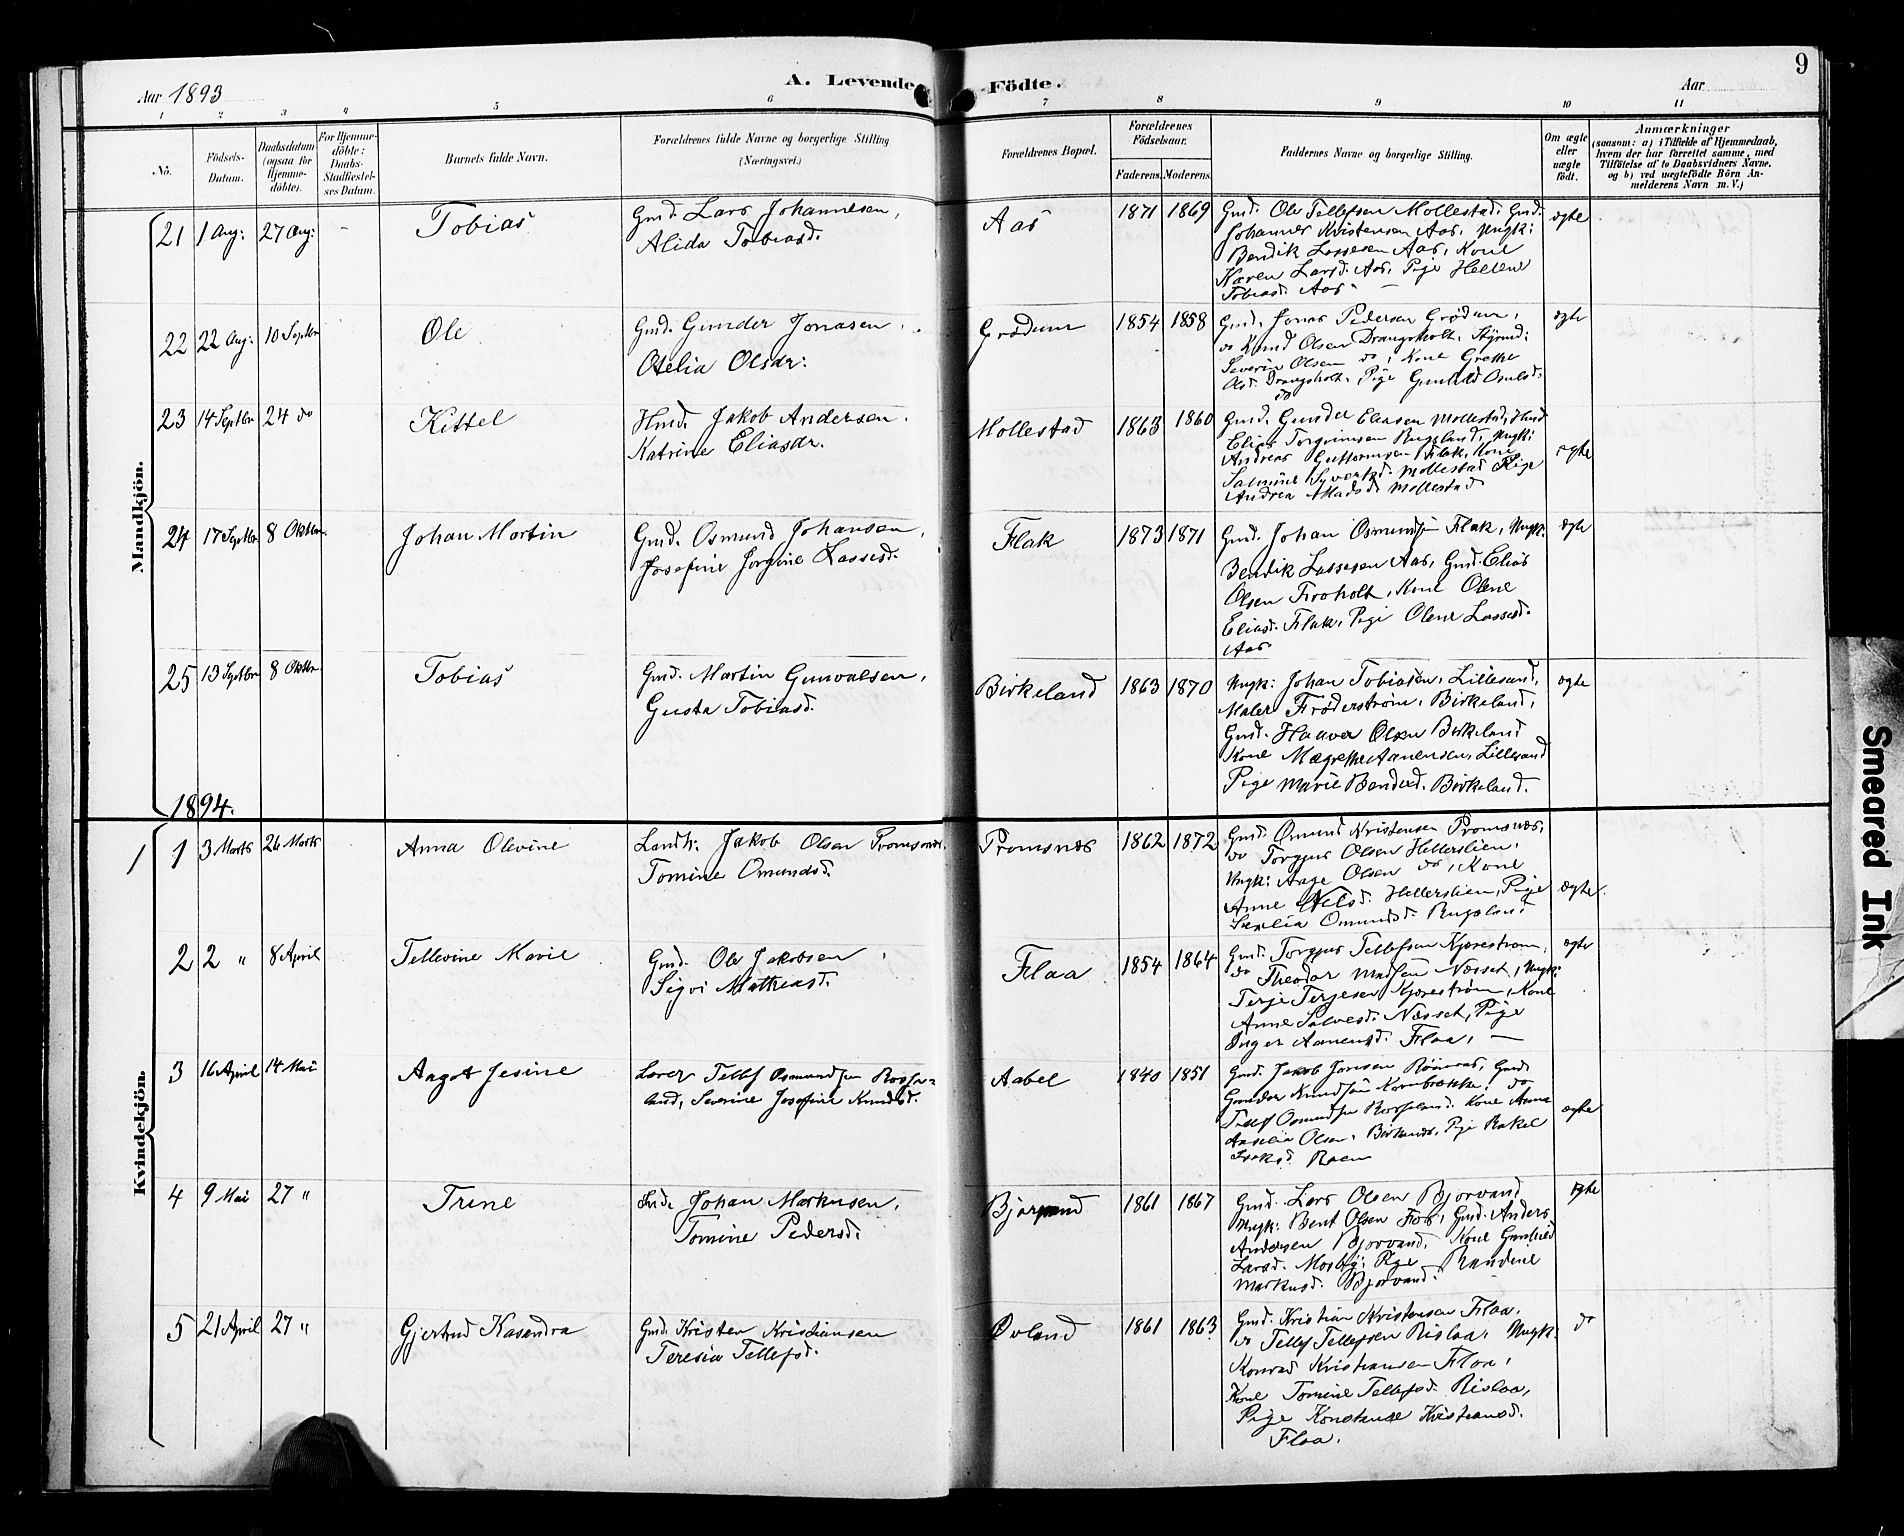 9
Aar 1893
A. Levende Födte.
Aar
1 2 3 4 5 6 7 8 9 10 11
No.
Födsels-
Datum.
Daabsdatum
(ogsaa for
Hjemme-
döbte).
For Hjemme-
döbte:
Daabs-
Stadfæstel-
ses Datum.
Barnets fulde Navn.
Forældrenes fulde Navne og borgerlige Stilling
(Næringsvei.)
Forældrenes Bopæl.
Forældrenes
Födselsaar.
Faderens. Moderens.
Faddernes Navne og borgerlige Stilling.
Om ægte
eller
uægte
födt.
Anmærkninger
(saasom: a) i Tilfælde af Hjemmedaab,
hvem der har forrettet samme, med
Tilföielse af to Daabsvidners Navne,
og b) ved uægtefödte Börn An-
melderens Navn m. V.)
Mandkjön.
21 1 Aug: 27 Aug: - Tobias
Gmd. Lars Johannesen,
Alida Tobiasd.
Aas 1871 1869
Gmd. Ole Tellefsen Mollestad, Gmd.
Johannes Kristensen Aas, Ungk:
Bendik Lassesen Aas, Kone
Karen Larsd. Aas, Pige Hellene
Tobiasd. Aas -
ægte
22 22 Aug: 10 Septbr Ole
Gmd. Gunder Jonasen,
Otelia Olsdr:
Grødum 1854 1858
Gmd. Jonas Pedersen Grødum,
do Knud Olsen Drangsholt, Styrmd:
Severin Olsen do, Kone Grethe
Olsd. Drangsholt, Pige Gunhild Osulsd.
do
ægte
23 14 Septbr 24 do Kittel
Hmd. Jakob Andersen.
Katrine Eliasdr.
Mollestad 1863 1860
Gmd. Gunder Eliasen Mollestad, Hmd
Elias Torgrimsen Rugsland, Ungk:
Andreas Guttormsen Flak, Kone
Salmine Syvertsd. Mollestad Pige
Andrea Madsd. Mollestad
ægte
24 17 Septbr 8 Oktbr. Johan Martin
Gmd. Osmund Johansen,
Josefine Jorgine Lassesd.
Flak 1873 1871
Gmd. Johan Osmundsen Flak, Ungk:
Bendik Lassesen Aas, Gmd. Elias
Olsen Tiroholt, Kone Olene
Eliasd. Flak, Pige Olene Lassesd.
Aas
ægte
25 13 Septbr 8 Oktbr Tobias
Gmd. Martin Gunvalsen,
Gusta Tobiasd.
Birkeland 1863 1870
Ungk: Johan Tobiasen, Lillesand,
Maler Frøderstrøm, Birkeland,
Gmd. Haaver Olsen Birkeland
Kone Magrethe Aanensen, Lillesand
Pige Marie Bendixd. Birkeland.
ægte
1894.
Kvindekjön.
1 1 3 Marts 26 Marts Anna Olevine
Landh: Jakob Olsen Tromsnæs.
Tomine Omundsd.
Tromsnæs 1862 1872
Gmd. Omund Kristensen Tromsnæs,
do Torgjus Olsen Hellerslien,
Ungk: Aage Olsen do, Kone
Anne Nilsd. Hellerslien, Pige
Omundsd. Rugsland
ægte.
2 2 " 8 April Tellevine Marie
Gmd. Ole Jakobsen,
Sigvi Mathiasd.
Flaa 1854 1864
Gmd. Torgjus Tellefsen Kjærestrøm,
do Theodor Madsen Næsset, Ungk:
Terje Terjesen Kjærestrøm, Kone
Anne Salvesd. Næsset, Pige
Inger Aanensd. Flaa, -
ægte
3 16 April 14 Mai Aagot Jesine
Lærer Tellef Osmundsen Rosse-
land, Severine Josefine Knudsd.
Aabel 1840 1851
Gmd. Jakob Jansen Rønnæs, Gmd
Gunder Knudsen Kornbrække, do
Tellef Osmundsen Rosseland. Kone Anna
Aaselia Olsen, Birkenæs, Pige Rakel
Isaksd. Raen
ægte
4 9 Mai 27 " Trine
Gmd. Johan Markusen,
Tomine Pedersd.
Bjorvand 1861 1867
Gmd. Lars Olsen Bjorvand
Ungk: Bent Olsen Fos, Gmd. Anders
Andersen Bjorvand, Kone Gunhild
Larsd. Mosby, Pige Randine
Markusd. Bjorvand.
ægte
5 21 April 27 " Gjertrud Kasendra
Gmd. Kristen Kristiansen
Teresia Tellefsd.
Øvland 1861 1863
Gmd. Kristian Kristensen Flaa,
do Tellef Tellefsen Rislaa, Ungk:
Konrad Kristiansen Flaa,
Kone Tomine Tellefsd. Rislaa,
Pige Konstanse Kristiansd.
Flaa.
do
Smeared Ink